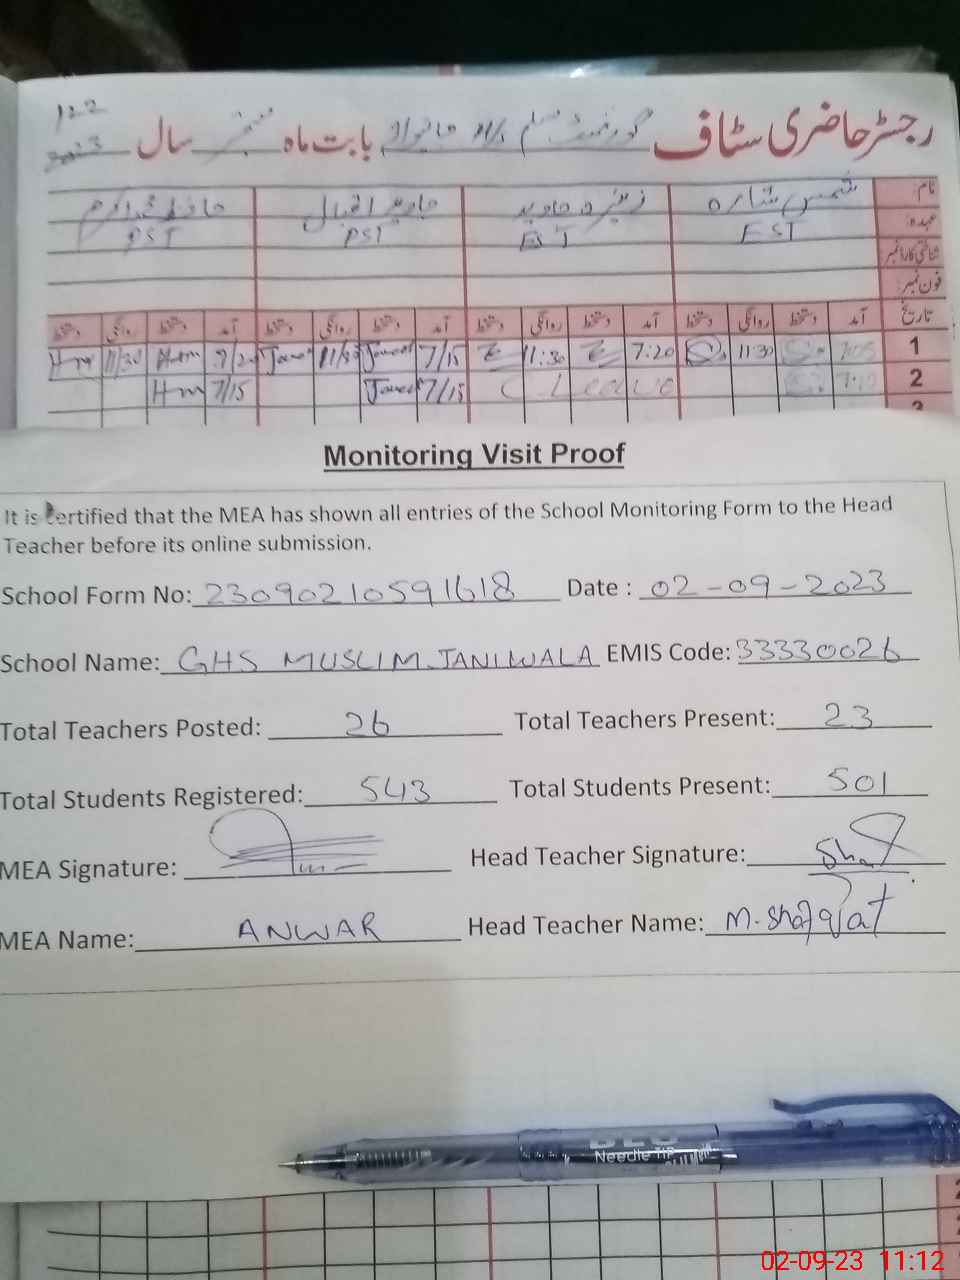 122
رجسٹر حاضری سٹاف گورنمنٹ مسلم بابت ماہ ستمبر سال
نام: شمس ستارہ جاوید جاوید اقبال حافظ محمد اکرم
عہدہ: EST EST PST PST
شناختی کارڈ نمبر:
فون نمبر:
تاریخ آمد دستخط روانگی دستخط آمد دستخط روانگی دستخط آمد دستخط روانگی دستخط آمد دستخط روانگی دستخط
1 7:05 11:30 7:20 11:30 7/15 Javed 11/30 Javed 7/20 Hm 11/30 Hm
2 7:10 C Leave 7/15 Javed 7/15 Hm
3
Monitoring Visit Proof
It is certified that the MEA has shown all entries of the School Monitoring Form to the Head
Teacher before its online submission.
School Form No: 23090210591618 Date : 02-09-2023
School Name: GHS MUSLIM JANIWALA EMIS Code: 33330026
Total Teachers Posted: 26 Total Teachers Present: 23
Total Students Registered: 543 Total Students Present: 501
MEA Signature: Head Teacher Signature: Shaf
MEA Name: ANWAR Head Teacher Name: M. Shafqat
Needle Tip
02-09-23 11:12